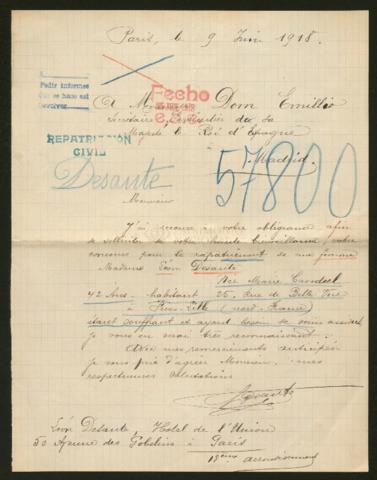 Paris, le 9 Juin 1918.
Pedir informes
Fecho
A M Dom Emilio
Secrétaire particulier de Sa
Majesté le Roi d'Espagne
à
Madrid.
REPATRIACIÓN
CIVIL
Desante
57800
Monsieur
J'ai recours à votre obligeance afin
de solliciter de votre haute bienveillance, votre
concours pour le rapatriement de ma femme
Madame Léon Desante
Née Marie
42 Ans - habitant 25, Rue de Belle Vue
à (nord-France)
étant souffrant et ayant besoin de soins
je vous en serai très reconnaissant.
Avec mes remerciements anticipés
je vous prie d'agréer Monsieur mes
respectueuses salutations
Desante
Léon Desante, Hotel de l'Union
50 Avenue des Gobelins à Paris
13ème arrondissement